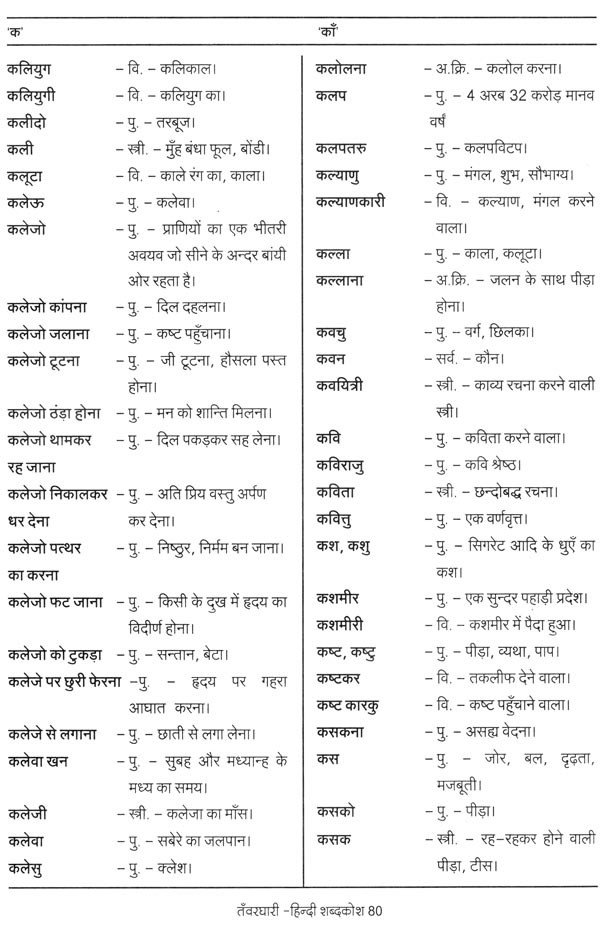 'क'
कलियुग – वि. – कलिकाल।
कलियुगी – वि. – कलियुग का।
कलीदो – पु. – तरबूज।
कली – स्त्री. – मुँह बंधा फूल, बोंडी।
कलूटा – वि. – काले रंग का, काला।
कलेऊ – पु. – कलेवा।
कलेजो – पु. – प्राणियों का एक भीतरी
अवयव जो सीने के अन्दर बांयी
ओर रहता है।
कलेजो कांपना – पु. – दिल दहलना।
कलेजो जलाना – पु. – कष्ट पहुँचाना।
कलेजो टूटना – पु. – जी टूटना, हौसला पस्त
होना।
कलेजो ठंड़ा होना – पु. – मन को शान्ति मिलना।
कलेजो थामकर – पु. – दिल पकड़कर सह लेना।
रह जाना
कलेजो निकालकर – पु. – अति प्रिय वस्तु अर्पण
धर देना कर देना।
कलेजो पत्थर – पु. – निष्ठुर, निर्मम बन जाना।
का करना
कलेजो फट जाना – पु. – किसी के दुख में हृदय का
विदीर्ण होना।
कलेजो को टुकड़ा – पु. – सन्तान, बेटा।
कलेजे पर छुरी फेरना –पु. – हृदय पर गहरा
आघात करना।
कलेजे से लगाना – पु. – छाती से लगा लेना।
कलेवा खन – पु. – सुबह और मध्यान्ह के
मध्य का समय।
कलेजी – स्त्री. – कलेजा का माँस।
कलेवा – पु. – सबेरे का जलपान।
कलेसु – पु. – क्लेश।
'काँ'
कलोलना – अ.क्रि. – कलोल करना।
कलप – पु. – 4 अरब 32 करोड़ मानव
वर्षं
कलपतरु – पु. – कलपविटप।
कल्याणु – पु. – मंगल, शुभ, सौभाग्य।
कल्याणकारी – वि. – कल्याण, मंगल करने
वाला।
कल्ला – पु. – काला, कलूटा।
कल्लाना – अ.क्रि. – जलन के साथ पीड़ा
होना।
कवचु – पु. – वर्ग, छिलका।
कवन – सर्व. – कौन।
कवयित्री – स्त्री. – काव्य रचना करने वाली
स्त्री।
कवि – पु. – कविता करने वाला।
कविराजु – पु. – कवि श्रेष्ठ।
कविता – स्त्री. – छन्दोबद्ध रचना।
कवित्तु – पु. – एक वर्णवृत्त।
कश, कशु – पु. – सिगरेट आदि के धुएँ का
कश।
कशमीर – पु. – एक सुन्दर पहाड़ी प्रदेश।
कशमीरी – वि. – कशमीर में पैदा हुआ।
कष्ट, कष्टु – पु. – पीड़ा, व्यथा, पाप।
कष्टकर – वि. – तकलीफ देने वाला।
कष्ट कारकु – वि. – कष्ट पहुँचाने वाला।
कसकना – पु. – असह्य वेदना।
कस – पु. – जोर, बल, दृढ़ता,
मजबूती।
कसको – पु. – पीड़ा।
कसक – स्त्री. – रह-रहकर होने वाली
पीड़ा, टीस।
तँवरघारी –हिन्दी शब्दकोश 80